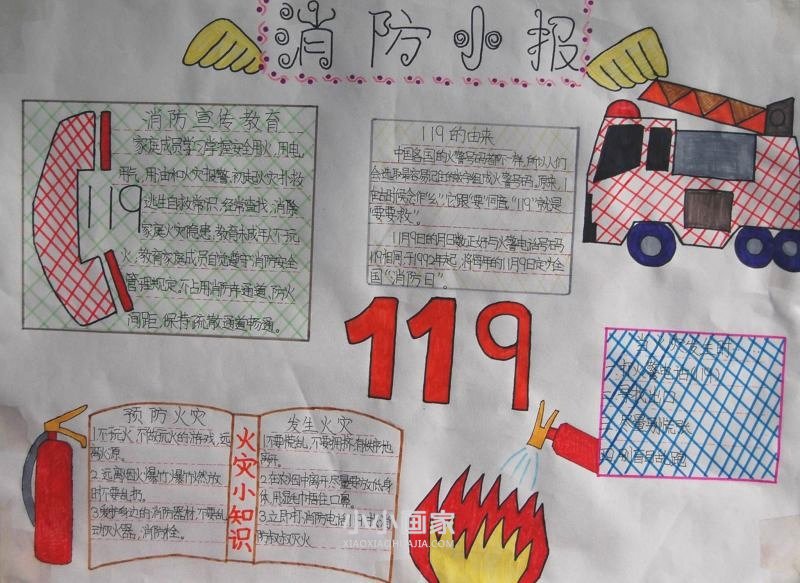 消防小报
消防宣传教育
家庭成员学习掌握安全用火、用电、
用气、用油和火灾报警、初起火灾扑救、
逃生自救常识，经常查找、消除
家庭火灾隐患；教育未成年人不玩
火；教育家庭成员自觉遵守消防安全
管理规定，不占用消防车通道、防火
间距，保持疏散通道畅通。
119
119的由来
中国各国的火警号码都不一样，所以人们
会选择最容易记住的数字组成火警号码。原来，1
在古时候念作"幺"，它跟"要"同音。"119"就是
"要要救"。
11月9日的月日数正好与火警电话号码
119相同，于1992年起，将每年的11月9日定为全
国"消防日"。
119
当火灾发生时
预防火灾
1.不玩火，不做玩火的游戏，远
离火源。
2.远离烟火爆竹，爆竹燃放
时不要乱扔。
3.爱护身边的消防器材，不要乱
动灭火器，消防栓。
火灾小知识
发生火灾
1.不要慌乱，不要拥挤，有秩序地
离开。
2.在浓烟中离开尽量要放低身
体，用湿毛巾捂住口鼻。
3.立即打消防电话
小小画家
XIAOXIAOHUAJIA.COM